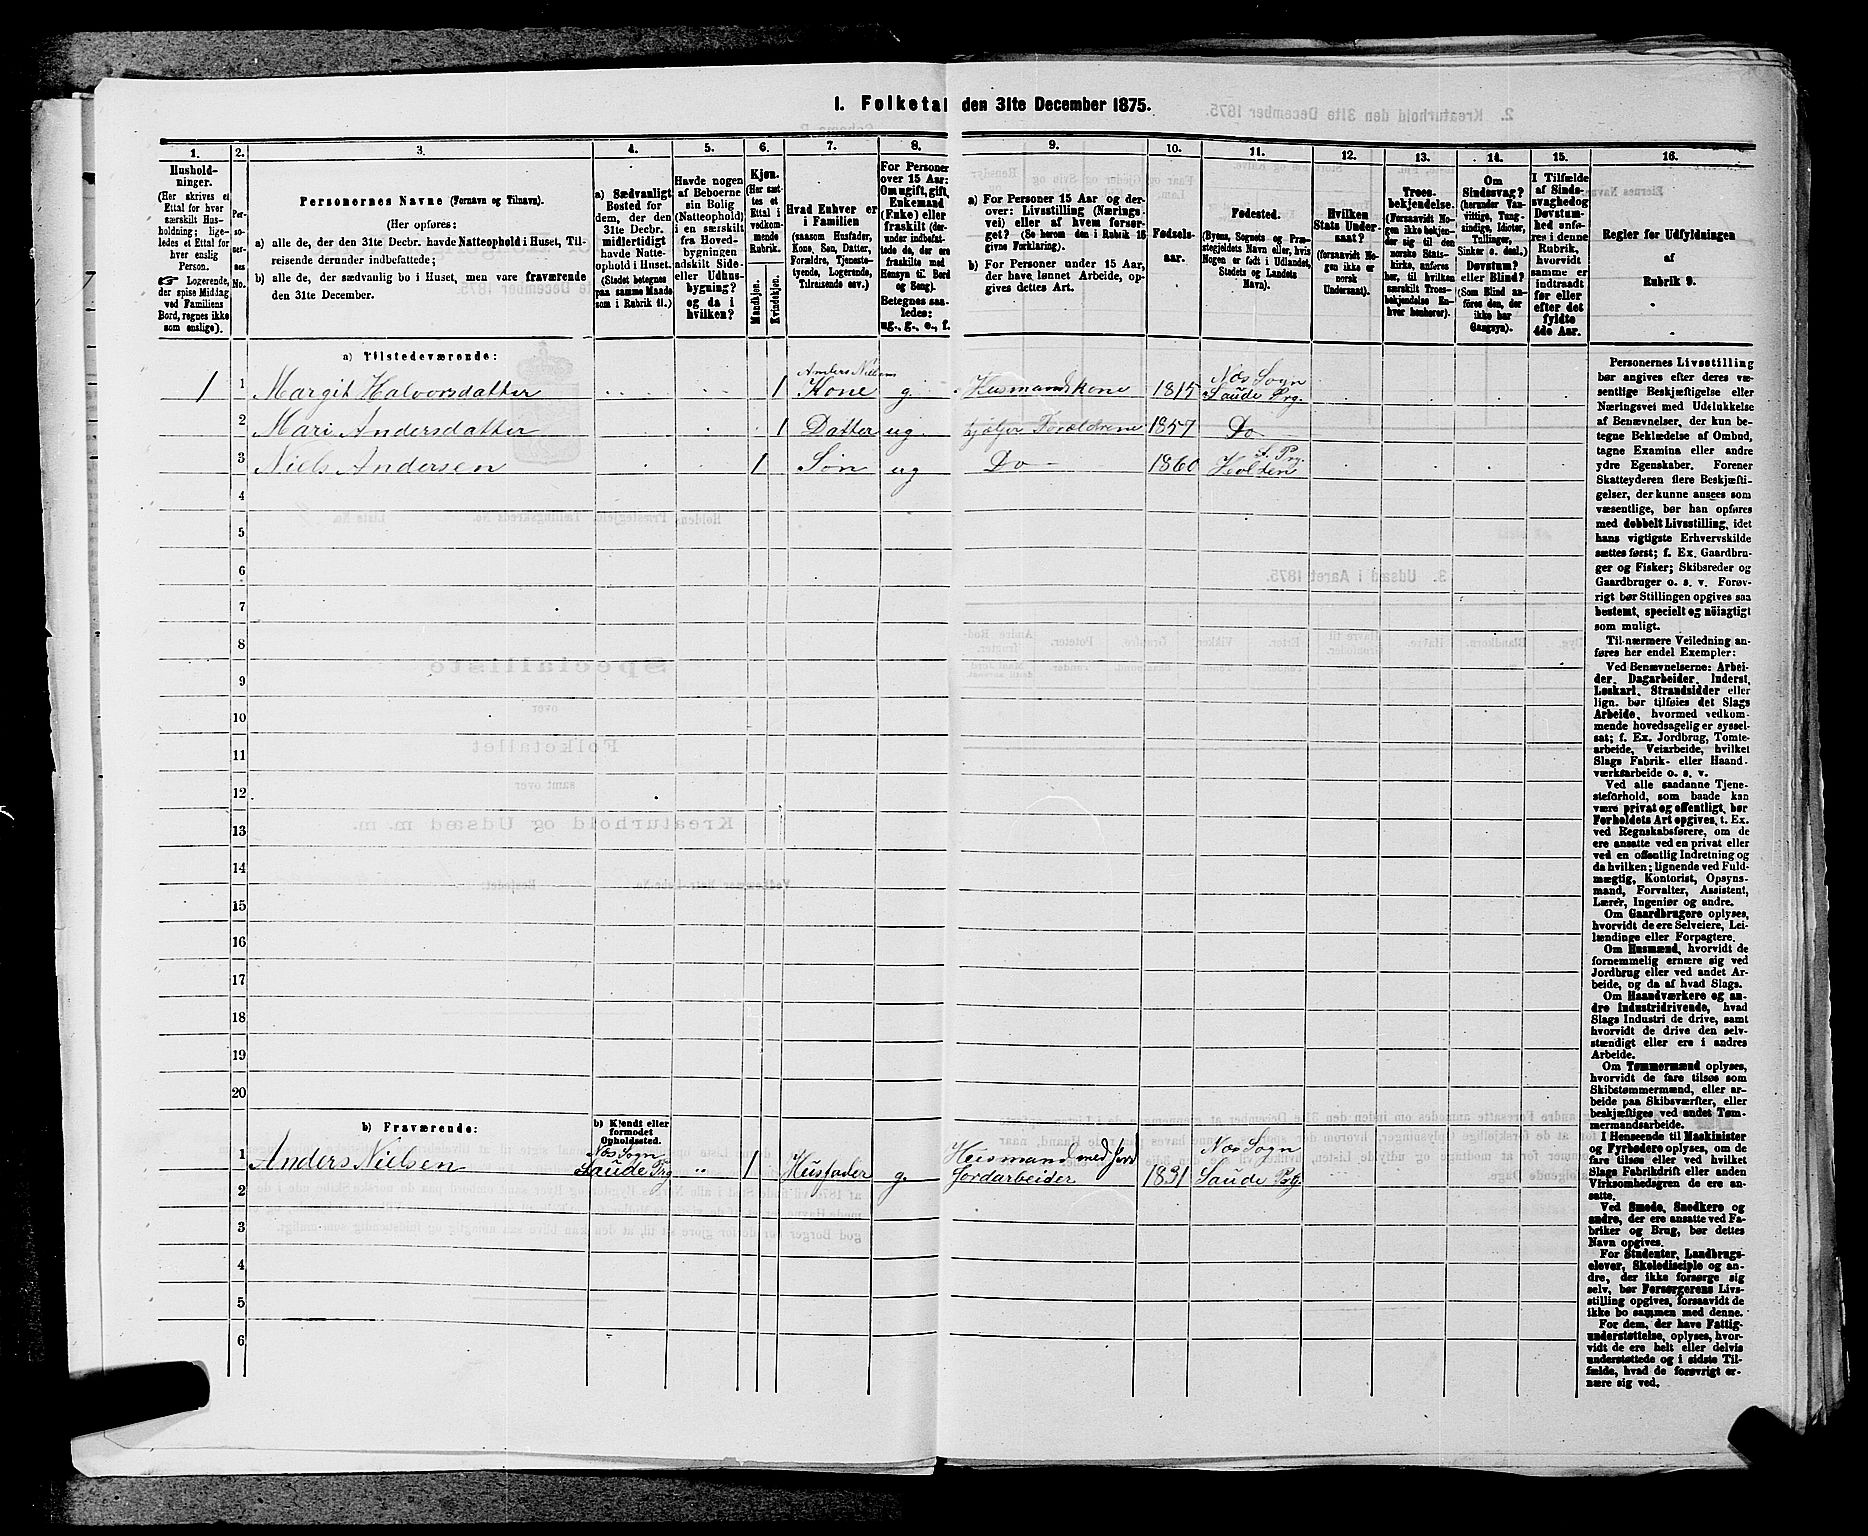 I. Folketal den 31te December 1875.
1.
Hushold-
ninger.
(Her skrives et
Ettal for hver
særskilt Hus-
holdning; lige-
ledes et Ettal for
hver enslig
Person.
☞ Logerende,
der spise Middag
ved Familiens
Bord, regnes ikke
som enslige).
2.
Per-
so-
ner-
nes
No.
3.
Personernes Navne (Fornavn og Tilnavn).
(Her opføres:
a) alle de, der den 31te Decbr. havde Natteophold i Huset, Til-
reisende derunder indbefattede;
b) alle de, der sædvanlig bo i Huset, men vare fraværende
den 31te December.
4.
a) Sædvanligt
Bosted for
dem, der den
31te Decbr.
midlertidigt
havde Natte-
ophold i Huset.
(Stedet betegnes
paa samme Maade
som i Rubrik 11.)
5.
Havde nogen
af Beboerne
sin Bolig
(Natteophold)
i en særskilt
fra Hoved-
bygningen
adskilt Side-
eller Udhus-
bygning?
og da i
hvilken?
6.
Kjøn.
(Her sæt-
tes et
Ettal i
vedkom-
mende
Rubrik.
Mandkjøn.
Kvindekjøn.
7.
Hvad Enhver er
i Familien
(saasom Husfader,
Kone, Søn, Datter,
Forældre, Tjeneste-
tyende, Logerende,
Tilreisende osv.)
8.
For Personer
over 15 Aar:
Om ugift, gift,
Enkemand
(Enke) eller
fraskilt (der-
under indbefat-
tede de, der ere
fraskilte med
Hensyn til Bord
og Seng).
Betegnes saa-
ledes:
ug., g., e., f.
9.
a) For Personer 15 Aar og der-
over: Livsstilling (Nærings-
vei) eller af hvem forsør-
get? (Se herom den i Rubrik 16
givne Forklaring).
b) For Personer under 15 Aar,
der have lønnet Arbeide, op-
gives dettes Art.
10.
Fødsels-
aar.
11.
Fødested.
(Byens, Sognets og Præ-
stegjeldets Navn eller, hvis
Nogen er født i Udlandet,
Stedets og Landets
Navn).
12.
Hvilken
Stats Under-
saat?
(forsaavidt No-
gen ikke er
norsk
Undersaat).
13.
Troes-
bekjendelse.
(Forsaavidt No-
gen ikke bekjen-
der sig til den
norske Stats-
kirke, anføres
her, til hvilken
særskilt Troes-
bekjendelse En-
hver henhører).
14.
Om
Sindssvag?
(herunder Van-
vittige, Tung-
sindige, Idioter,
Tullinger,
Sinker o. desl.).
Døvstum?
eller Blind?
(Som Blind an-
føres den, der
ikke har
Gangsyn).
15.
I Tilfælde
af Sinds-
svaghed og
Døvstum-
hed anfø-
res i denne
Rubrik,
hvorvidt
samme er
indtraadt
før eller
efter det
fyldte
4de Aar.
16.
Regler for Udfyldningen
af
Rubrik 9.
a) Tilstedeværende:
1 1 Margit Halvorsdatter 1 Anders Nielsens Kone g. Husmandskone 1815 Næs Sogn Saude Prg.
2 Mari Andersdatter 1 Datter ug hjælper Forældrene 1857 Do
3 Niels Andersen 1 Søn ug Do 1860 Holden S. Prg.
4
5
6
7
8
9
10
11
12
13
14
15
16
17
18
19
20
b) Fraværende:
b) Kjendt eller
formodet
Opholdssted.
1 Anders Nielsen Næs Sogn Saude Prg „ 1 Husfader g. Husmand med Jord Jordarbeider 1831 Næs Sogn Saude Prg.
2
3
4
5
6
Personernes Livsstilling
bør angives efter deres væ-
sentlige Beskjæftigelse eller
Næringsvei med Udelukkelse
af Benævnelser, der kun be-
tegne Beklædelse af Ombud,
tagne Examina eller andre
ydre Egenskaber. Forener
Skatteyderen flere Beskjæfti-
gelser, der kunne ansees som
væsentlige, bør han opføres
med dobbelt Livsstilling, idet
hans vigtigste Erhvervskilde
sættes først; f. Ex. Gaardbru-
ger og Fisker; Skibsreder og
Gaardbruger o. s. v. Forøv-
rigt bør Stillingen opgives saa
bestemt, specielt og nöiagtigt
som muligt.
Til nærmere Veiledning an-
føres her endel Exempler:
Ved Benævnelserne: Arbei-
der, Dagarbeider, Inderst,
Løskarl, Strandsidder eller
lign. bør tilføies det Slags
Arbeide, hvormed vedkom-
mende hovedsagelig er syssel-
sat; f. Ex. Jordbrug, Tomte-
arbeide, Veiarbeide, hvilket
Slags Fabrik- eller Haand-
værksarbeide o. s. v.
Ved alle saadanne Tjene-
steforhold, som baade kan
være privat og offentligt, bør
Forholdets Art opgives, t. Ex.
ved Regnskabsførere, om de
ere ansatte ved en privat eller
ved en offentlig Indretning og
da hvilken; lignende ved Fuld-
mægtig, Kontorist, Opsyns-
mand, Forvalter, Assistent,
Lærer, Ingeniør og andre.
Om Gaardbrugere oplyses,
hvorvidt de ere Selveiere, Lei-
lændinge eller Forpagtere.
Om Husmænd, hvorvidt de
fornemmelig ernære sig ved
Jordbrug eller ved andet Ar-
beide, og da af hvad Slags.
Om Haandværkere og an-
dre Industridrivende, hvad
Slags Industri de drive, samt
hvorvidt de drive den selv-
stændigt eller ere i andres
Arbeide.
Om Tømmermænd oplyses,
hvorvidt de fare tilsøs som
Skibstømmermænd, eller ar-
beide paa Skibsværfter, eller
beskjæftiges ved andet Tøm-
mermandsarbeide.
I Henseende til Maskinister
og Fyrbødere oplyses, om de
fare tilsøs eller ved hvilket
Slags Fabrikdrift eller anden
Virksomhedsgren de ere an-
satte.
Ved Smede, Snedkere og
andre, der ere ansatte ved Fa-
briker og Brug, bør dettes
Navn opgives.
For Studenter, Landbrugs-
elever, Skoledisciple og an-
dre, der ikke forsørge sig
selv, bør Forsørgerens Livs-
stilling opgives, forsaavidt de
ikke bo sammen med denne.
For dem, der have Fattig-
understøttelse, oplyses, hvor-
vidt de ere helt eller delvis
understøttede og i sidste Til-
fælde, hvad de forøvrigt er-
nære sig ved.